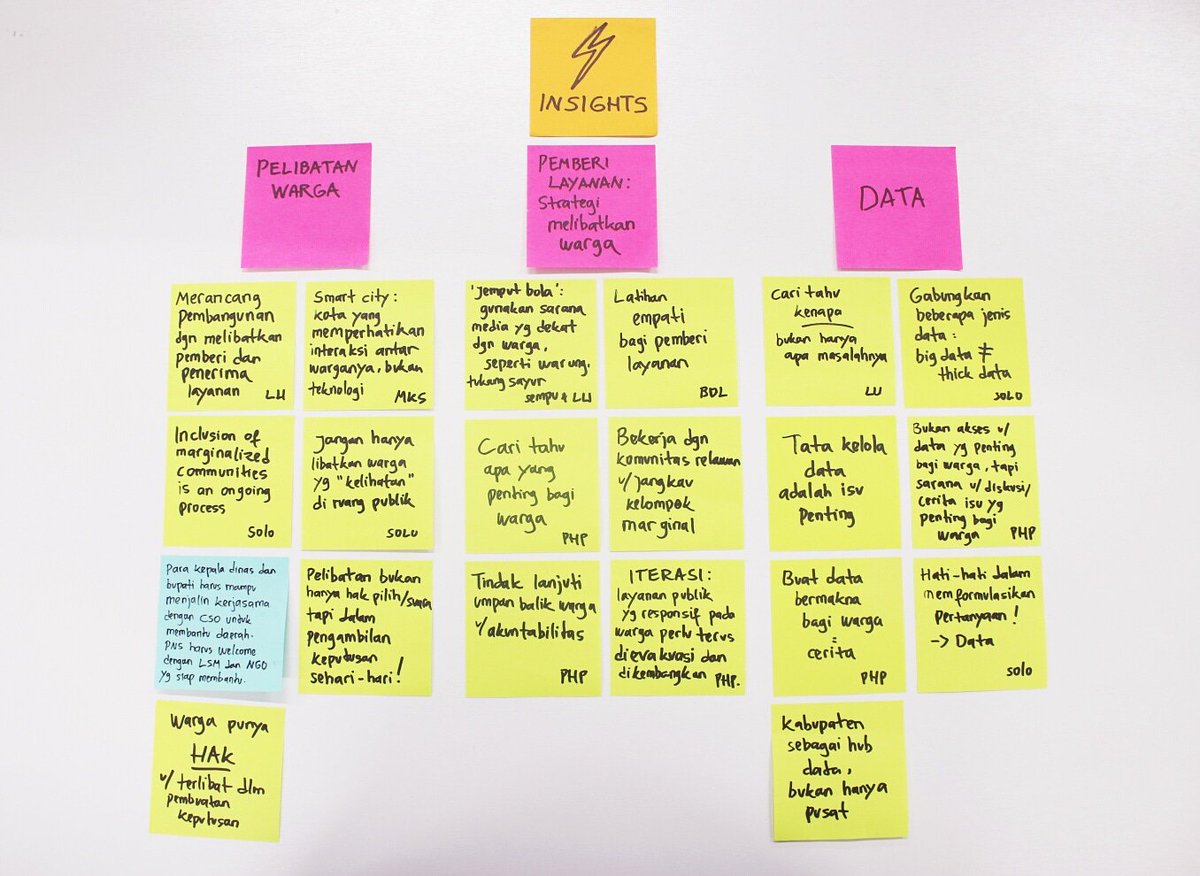 INSIGHTS
PELIBATAN
WARGA
Merancang
pembangunan
dgn melibatkan
pemberi dan
penerima
layanan
LU
Smart city:
kota yang
memperhatikan
interaksi antar
warganya, bukan
teknologi
MKS
Inclusion of
marginalized
communities
is an ongoing
process
Solo
Jangan hanya
libatkan warga
yg "kelihatan"
di ruang publik
SOLO
Para kepala dinas dan
bupati harus mampu
menjalin kerjasama
dengan CSO untuk
membantu daerah.
PNS harus welcome
dengan LSM dan NGO
yg siap membantu.
Pelibatan bukan
hanya hak pilih/suara
tapi dalam
pengambilan
keputusan
sehari-hari!
Warga punya
HAK
u/ terlibat dlm
pembuatan
keputusan
PEMBERI
LAYANAN:
Strategi
melibatkan
warga
'Jemput bola':
gunakan sarana
media yg dekat
dgn warga,
seperti warung,
tukang sayur
sempu & LU
Latihan
empati
bagi pemberi
layanan
BDL
Cari tahu
apa yang
penting bagi
warga
PHP
Bekerja dgn
komunitas relawan
u/ jangkau
kelompok
marginal
Tindak lanjuti
umpan balik warga
u/ akuntabilitas
PHP
ITERASI:
layanan publik
yg responsif pada
warga perlu terus
dievakuasi dan
dikembangkan
PHP.
DATA
Cari tahu
kenapa
bukan hanya
apa masalahnya
LU
Gabungkan
beberapa jenis
data:
big data ≠
thick data
SOLO
Tata kelola
data
adalah isu
penting
Bukan akses u/
data yg penting
bagi warga, tapi
sarana u/ diskusi/
cerita isu yg
penting bagi
warga
PHP
Buat data
bermakna
bagi warga
=
cerita
PHP
Hati-hati dalam
memformulasikan
Pertanyaan!
-> Data
Solo
Kabupaten
sebagai hub
data,
bukan hanya
pusat